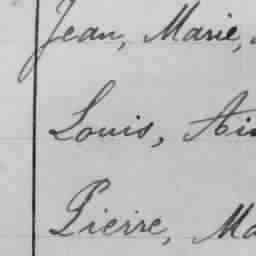 Jean, Marie,
Louis, Ai
Pierre, Ma